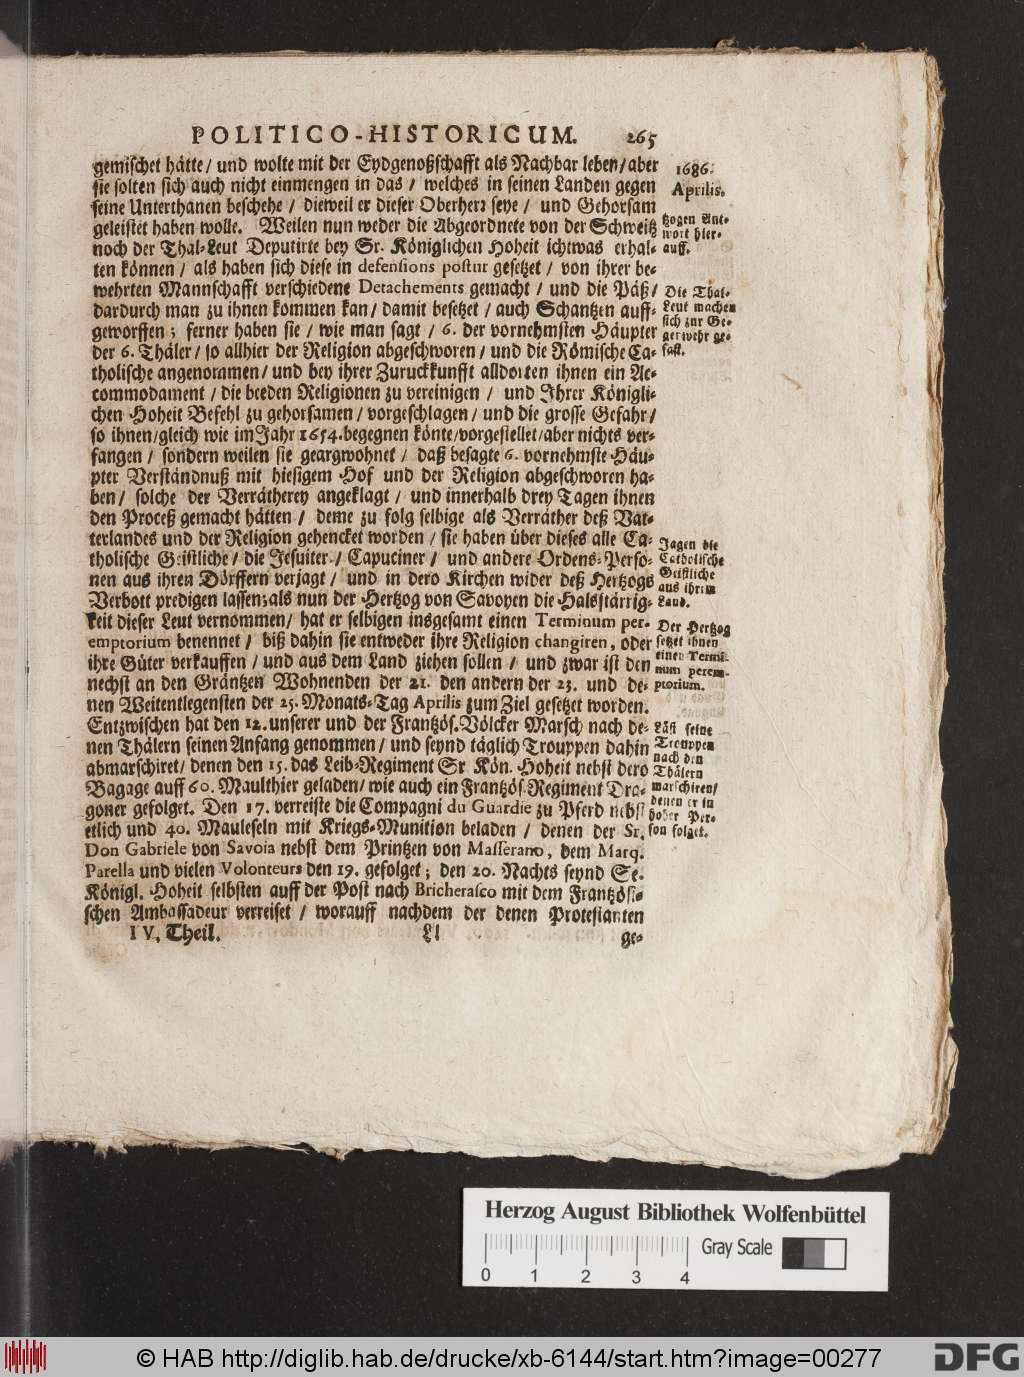 POLITICO-HISTORICUM. 265
gemischet hätte / und wolte mit der Eydgenoßschafft als Nachbar leben / aber
sie solten sich auch nicht einmengen in das / welches in seinen Landen gegen
seine Unterthanen beschehe / dieweil er dieser Oberherr seye / und Gehorsam
geleistet haben wolle. Weilen nun weder die Abgeordnete von der Schweitz
noch der Thal-Leut Deputirte bey Sr. Königlichen Hoheit ichtwas erhal-
ten können / als haben sich diese in defensions postur gesetzet / von ihrer be-
wehrten Mannschafft verschiedene Detachements gemacht / und die Päß /
dardurch man zu ihnen kommen kan / damit besetzet / auch Schantzen auff-
geworffen ; ferner haben sie / wie man sagt / 6. der vornehmsten Häupter
der 6. Thäler / so allhier der Religion abgeschworen / und die Römische Ca-
tholische angenommen / und bey ihrer Zuruckkunfft alldorten ihnen ein Ac-
commodament / die beeden Religionen zu vereinigen / und Ihrer Königli-
chen Hoheit Befehl zu gehorsamen / vorgeschlagen / und die grosse Gefahr /
so ihnen / gleich wie im Jahr 1654. begegnen könte / vorgestellet / aber nichts ver-
fangen / sondern weilen sie geargwohnet / daß besagte 6. vornehmste Häu-
pter Verständnuß mit hiesigem Hof und der Religion abgeschworen ha-
ben / solche der Verrätherey angeklagt / und innerhalb drey Tagen ihnen
den Proceß gemacht hätten / deme zu folg selbige als Verräther deß Vat-
terlandes und der Religion gehencket worden / sie haben über dieses alle Ca-
tholische Geistliche / die Jesuiter / Capuciner / und andere Ordens-Perso-
nen aus ihren Dörffern verjagt / und in dero Kirchen wider deß Hertzogs
Verbott predigen lassen ; als nun der Hertzog von Savoyen die Halsstärrig-
keit dieser Leut vernommen / hat er selbigen insgesamt einen Terminum per-
emptorium benennet / biß dahin sie entweder ihre Religion changiren, oder
ihre Güter verkauffen / und aus dem Land ziehen sollen / und zwar ist den
nechst an den Gräntzen Wohnenden der 21. den andern der 23. und de-
nen Weitentlegensten der 25. Monats-Tag Aprilis zum Ziel gesetzet worden.
Entzwischen hat den 12. unserer und der Frantzös. Völcker Marsch nach de-
nen Thälern seinen Anfang genommen / und seynd täglich Trouppen dahin
abmarschiret / denen den 15. das Leib-Regiment Sr Kön. Hoheit nebst dero
Bagage auff 60. Maulthier geladen / wie auch ein Frantzös. Regiment Dra-
goner gefolget. Den 17. verreiste die Compagni du Guardie zu Pferd nebst
etlich und 40. Mauleseln mit Kriegs-Munition beladen / denen der Sr.
Don Gabriele von Savoia nebst dem Printzen von Masserano, dem Marq.
Parella und vielen Volonteurs den 19. gefolget ; den 20. Nachts seynd Se.
Königl. Hoheit selbsten auff der Post nach Bricherasco mit dem Frantzösi-
schen Ambassadeur verreiset / worauff nachdem der denen Protestanten
IV. Theil. Ll ge-
1686.
Aprilis.
tzogen Ant-
wort hier-
auff.
Die Thal-
Leut machen
sich zur Ge-
gerwehr ge-
fast.
Jagen die
Catholische
Geistliche
aus ihrem
Land.
Der Hertzog
setzet ihnen
einen Termi-
num perem-
ptorium.
Läst seine
Trouppen
nach den
Thälern
marschiren /
denen er in
hoher Per-
son folget.
Herzog August Bibliothek Wolfenbüttel
Gray Scale
0 1 2 3 4
© HAB http://diglib.hab.de/drucke/xb-6144/start.htm?image=00277
DFG